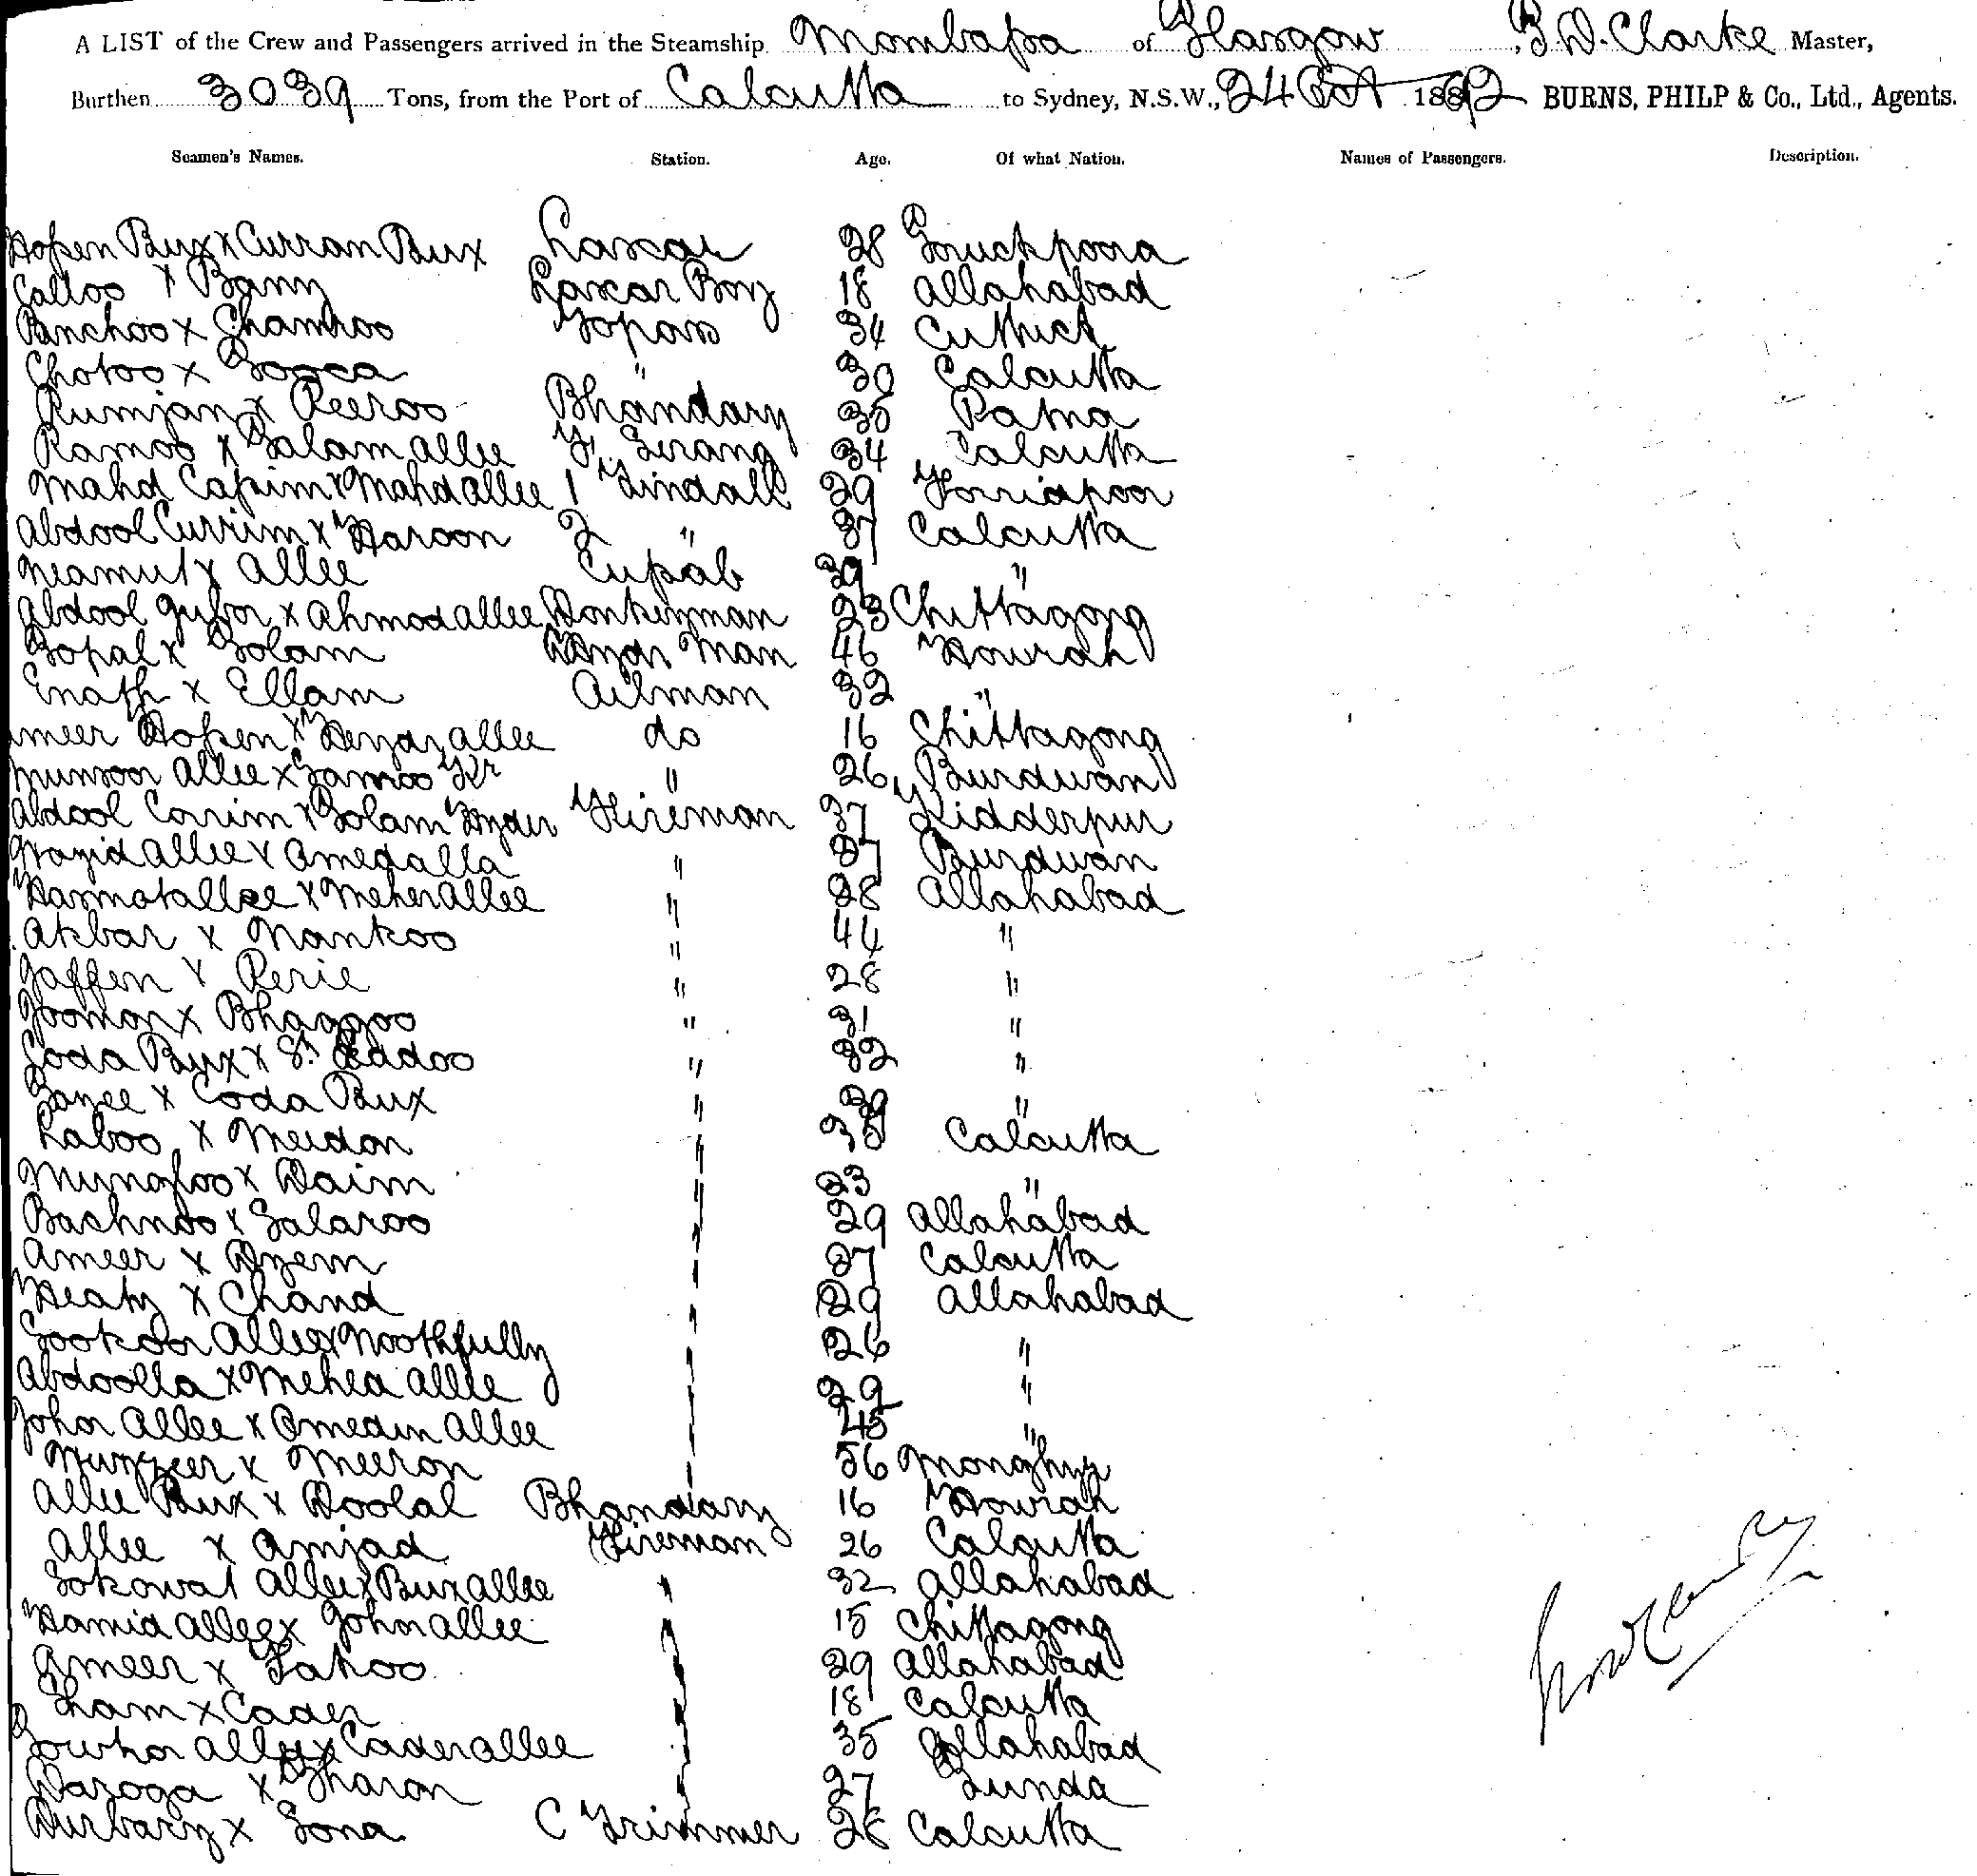 A LIST of the Crew and Passengers arrived in the Steamship Mombassa of Glasgow, G. D. Clarke Master,
Burthen 3039 Tons, from the Port of Calcutta to Sydney, N.S.W., 24 Oct 1892 BURNS, PHILP & Co., Ltd., Agents.
Seamen's Names. Station. Age. Of what Nation. Names of Passengers. Description.
Hossen Bux x Curran Bux Lascar 28 Goruckpoora
Calloo x Bany Lascar Boy 18 Allahabad
Banchoo x Chamroo Topass 34 Cuttuck
Chotoo x Gooca " 30 Calcutta
Rumjan x Peeroo Bhandary 35 Patna
Ramoo x Golam allee F. Serang 34 Calcutta
Mahd Cassim x Mahd allee 1 Tindall 29
Abdool Currim x Haroon 2 " 37 Calcutta
Neamut x Allee Cussab 39 "
Abdool Gubor x Ahmod allee Donkeyman 23 Chittagong
Gopal x Golam Man 46 Howrah
Enath x Ellam Oilman 32 "
Ameer Hossen x Hyder allee do 16 Chittagong
Munsoor Allee x Samoo Kr " 26 Burdwan
Abdool Corrim x Golam Hyder Fireman 37 Kidderpur
Wazid Allee x Amedalla " 37 Burdwan
Harmatallee x Meher Allee " 28 Allahabad
Akbar x Nankoo " 44 "
Gaffen x Perie " 28 "
Joomon x Bhaggoo " 31 "
Goda Bux x Sk Peddoo " 32 "
Ganee x Coda Bux " 39 "
Laboo x Meidon " 35 Calcutta
Mungloo x Daim " 23 "
Bachnoo x Salaroo " 29 Allahabad
Ameer x Azem " 37 Calcutta
Heaty x Chand " 29 Allahabad
Sookoor Allee x Noothfully " 26 "
Abdoolla x Mehea Allee " 29 "
Johor Allee x Omedin Allee " 45 "
x Meeron " 56 Monghyr
Allee Bux x Doolal Bhandary 16 Howrah
Allee x Amjad Fireman 26 Calcutta
Sokowat Allee x Bux allee " 32 Allahabad
Hamid allee x Johor allee " 15 Chittagong
Ameer x Fakoo " 29 Allahabad
Sham x Cader " 18 Calcutta
Gowhor allee x Cader allee " 35 Allahabad
Daroga x " 27
Durbary x Sona C Trimmer 28 Calcutta